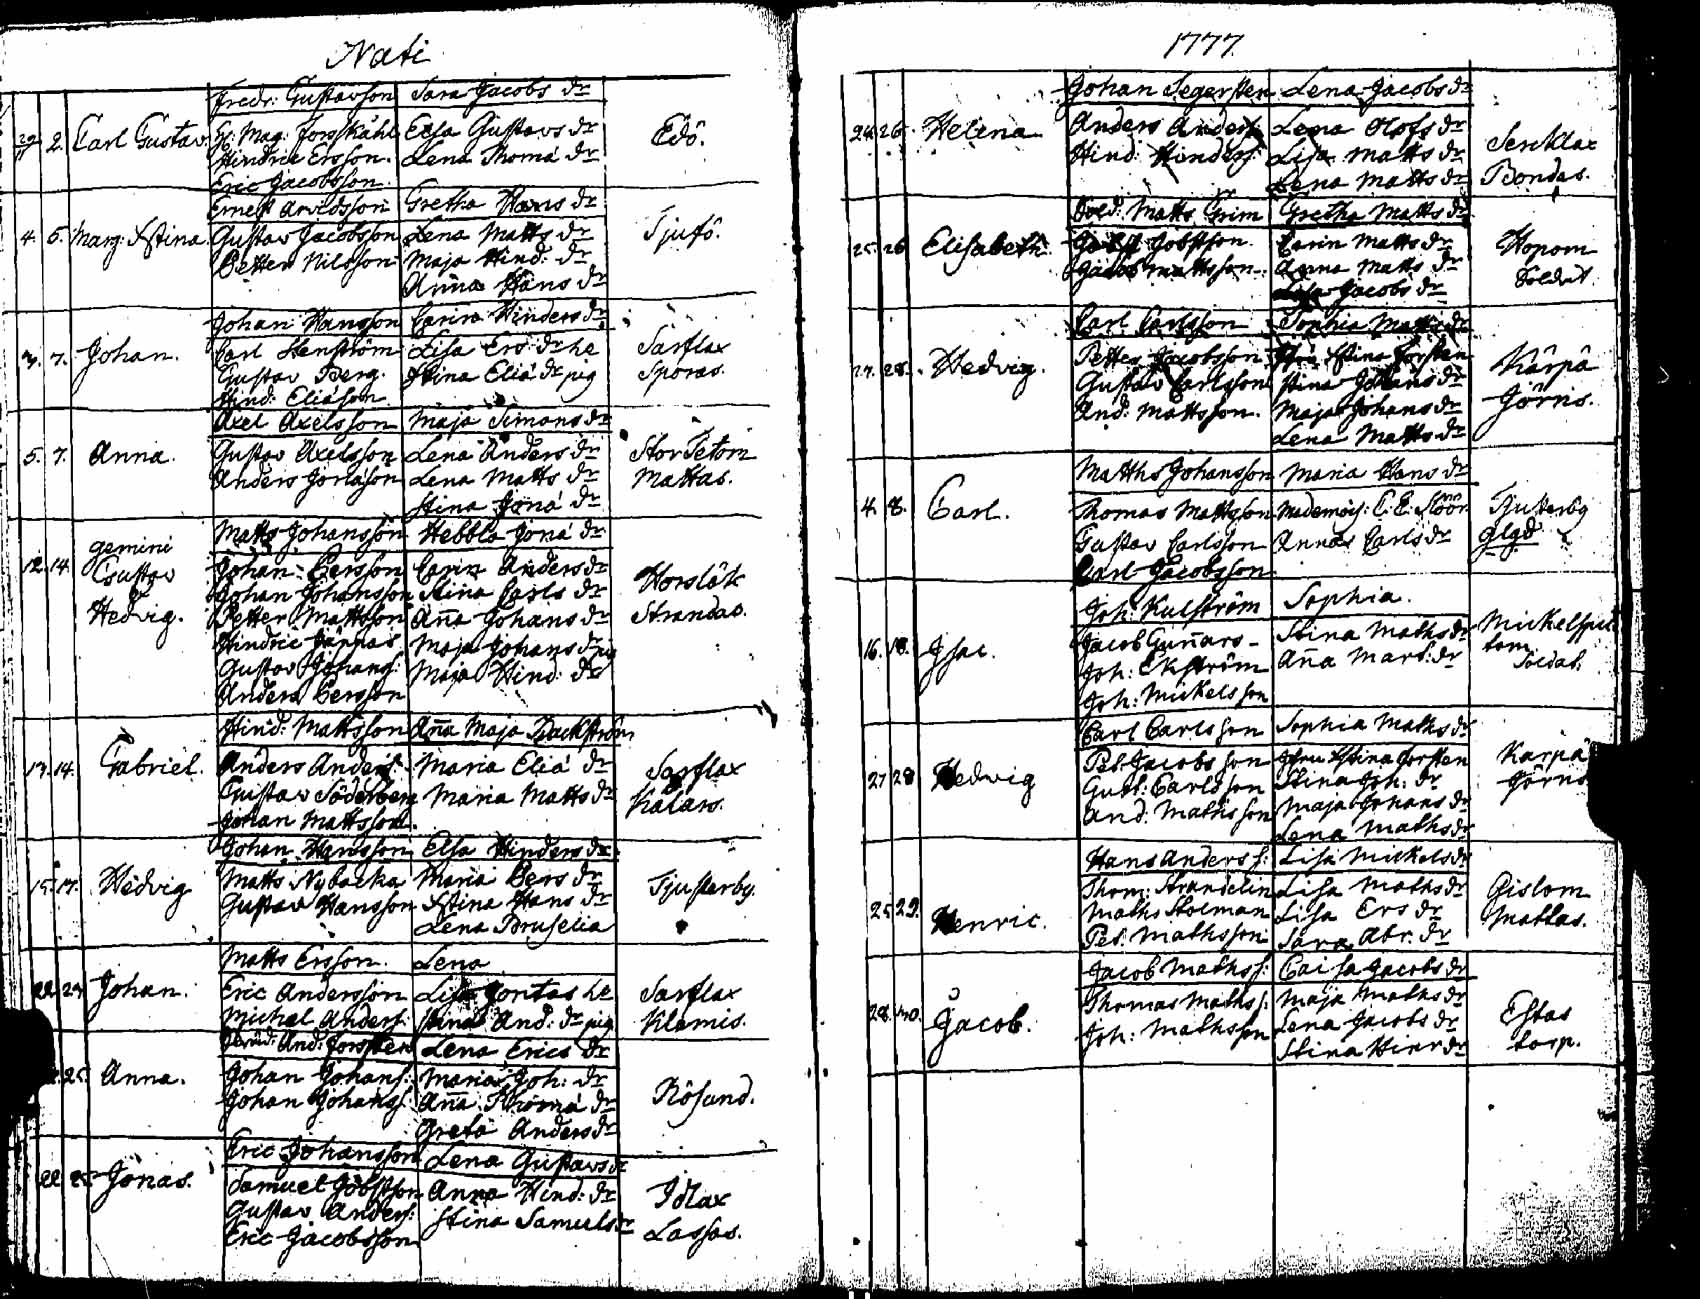 Nati
Fredr: Gustavsson Sara Jacobs dr
29/11 2. Carl Gustav. H: Mag: Forsskåhl Elsa Gustavs dr Edö.
Hindric Ersson. Lena Thomæ dr
Eric Jacobsson
Ernest Arvedsson Gretha Hans dr
4. 5. Marg: Xstina. Gustav Jacobsson Lena Matts dr Tjufö.
Petter Nilsson Maja Hind: dr
Anna Hans dr
Johan Hansson Carin Hinders dr
7. Johan. Carl Stenström Lisa Ers dr he Sarflax
Gustav Berg. Stina Eliæ dr pig Sporas.
Hind: Eliæson
Axel Axelsson Maja Simons dr
5. 7. Anna. Gustav Axelsson Lena Anders dr Stor Tetom
Anders Lena Matts dr Mattas.
Stina Jonæ dr
Matts Johansson Hebbla Jonæ dr
gemini
12. 14. Gustav Johan Persson Carin Anders dr Horslök
& Johan Johansson Stina Carls dr Strandas.
Hedvig. Petter Mattsson Aña Johans dr
Hindric Jäppas Maja Johans dr pig
Gustav Johans: Maja Hind: dr
Anders Persson
Hind: Mattsson Aña Maja Backström
13. 14. Gabriel. Anders Anders: Maria Eliæ dr Sarflax
Gustav Söderberg Maria Matts dr Kalars.
Johan Mattsson.
Johan Hansson Elsa Hinders dr
15. 17. Hedvig Matts Nybacka Maria Pers dr Tjusterby.
Gustav Hansson Xstina Hans dr
Lena Bruselia
Matts Ersson. Lena
22. 24. Johan. Eric Andersson Lisa he Sarflax
Michel Anders: Stina And: dr pig Klemis.
And: Forssten Lena Erics dr
25. Anna. Johan Johans: Maria Joh: dr Rösund.
Johan Johans: Aña Thomæ dr
Greta Anders dr
Eric Johansson Lena Gustavs dr
22. 25. Jonas. Samuel Jöbstsson Anna Hind: dr Idlax
Gustav Anders: Stina Samuels dr Lassas.
Eric Jacobsson
1777.
Johan Segersten Lena Jacobs dr
24. 26. Helena Anders Anders: Lena Olofs dr
Hind: Hinders: Lisa Matts dr Bondas.
Lena Matts dr
Sold: Matts Grim Gretha Matts dr
25. 26 Elisabeth. Jobstsson. Carin Matts dr Hopom
Jacob Mattsson. Anna Matts dr Soldat.
Lisa Jacobs dr
Carl Carlsson Sophia Matts dr
27. 28. Hedvig. Petter Jacobsson Xstina Forsten Kärpä
Gustav Carlsson Stina Johans dr Jörns.
And: Mattsson. Maja Johans dr
Lena Matts dr
Matths Johansson Maria Hans dr
4. 8. Carl. Thomas Mattsson Mademois: C: E: Tjusterby
Gustav Carlsson Annas Carls dr glgd
Carl Jacobsson
Joh: Kulström Sophia.
16. 18. Isac. Jacob Guñars- Stina Maths dr
Joh: Ekström Aña Mart: dr tom
Joh: Mickelsson Soldat.
Carl Carlsson Sophia Maths dr
27 28 Hedvig Pet: Jacobsson Xstina Forsten Karpä
Gust: Carlsson Stina Joh: dr Jörns
And: Mathsson Maja Johans dr
Lena Maths dr
Hans Anders s: Lisa Mickels dr
25 29. Henric. Thom: Strandelin Lisa Maths dr Gislom
Maths Lisa Ers dr Mattas.
Pet: Mathsson Sara Abr: dr
Jacob Maths s: Caisa Jacobs dr
28. 30. Jacob. Thomas Maths s: Maja Maths dr Estas
Joh: Mathsson Lena Jacobs dr torp.
Stina Hinr dr